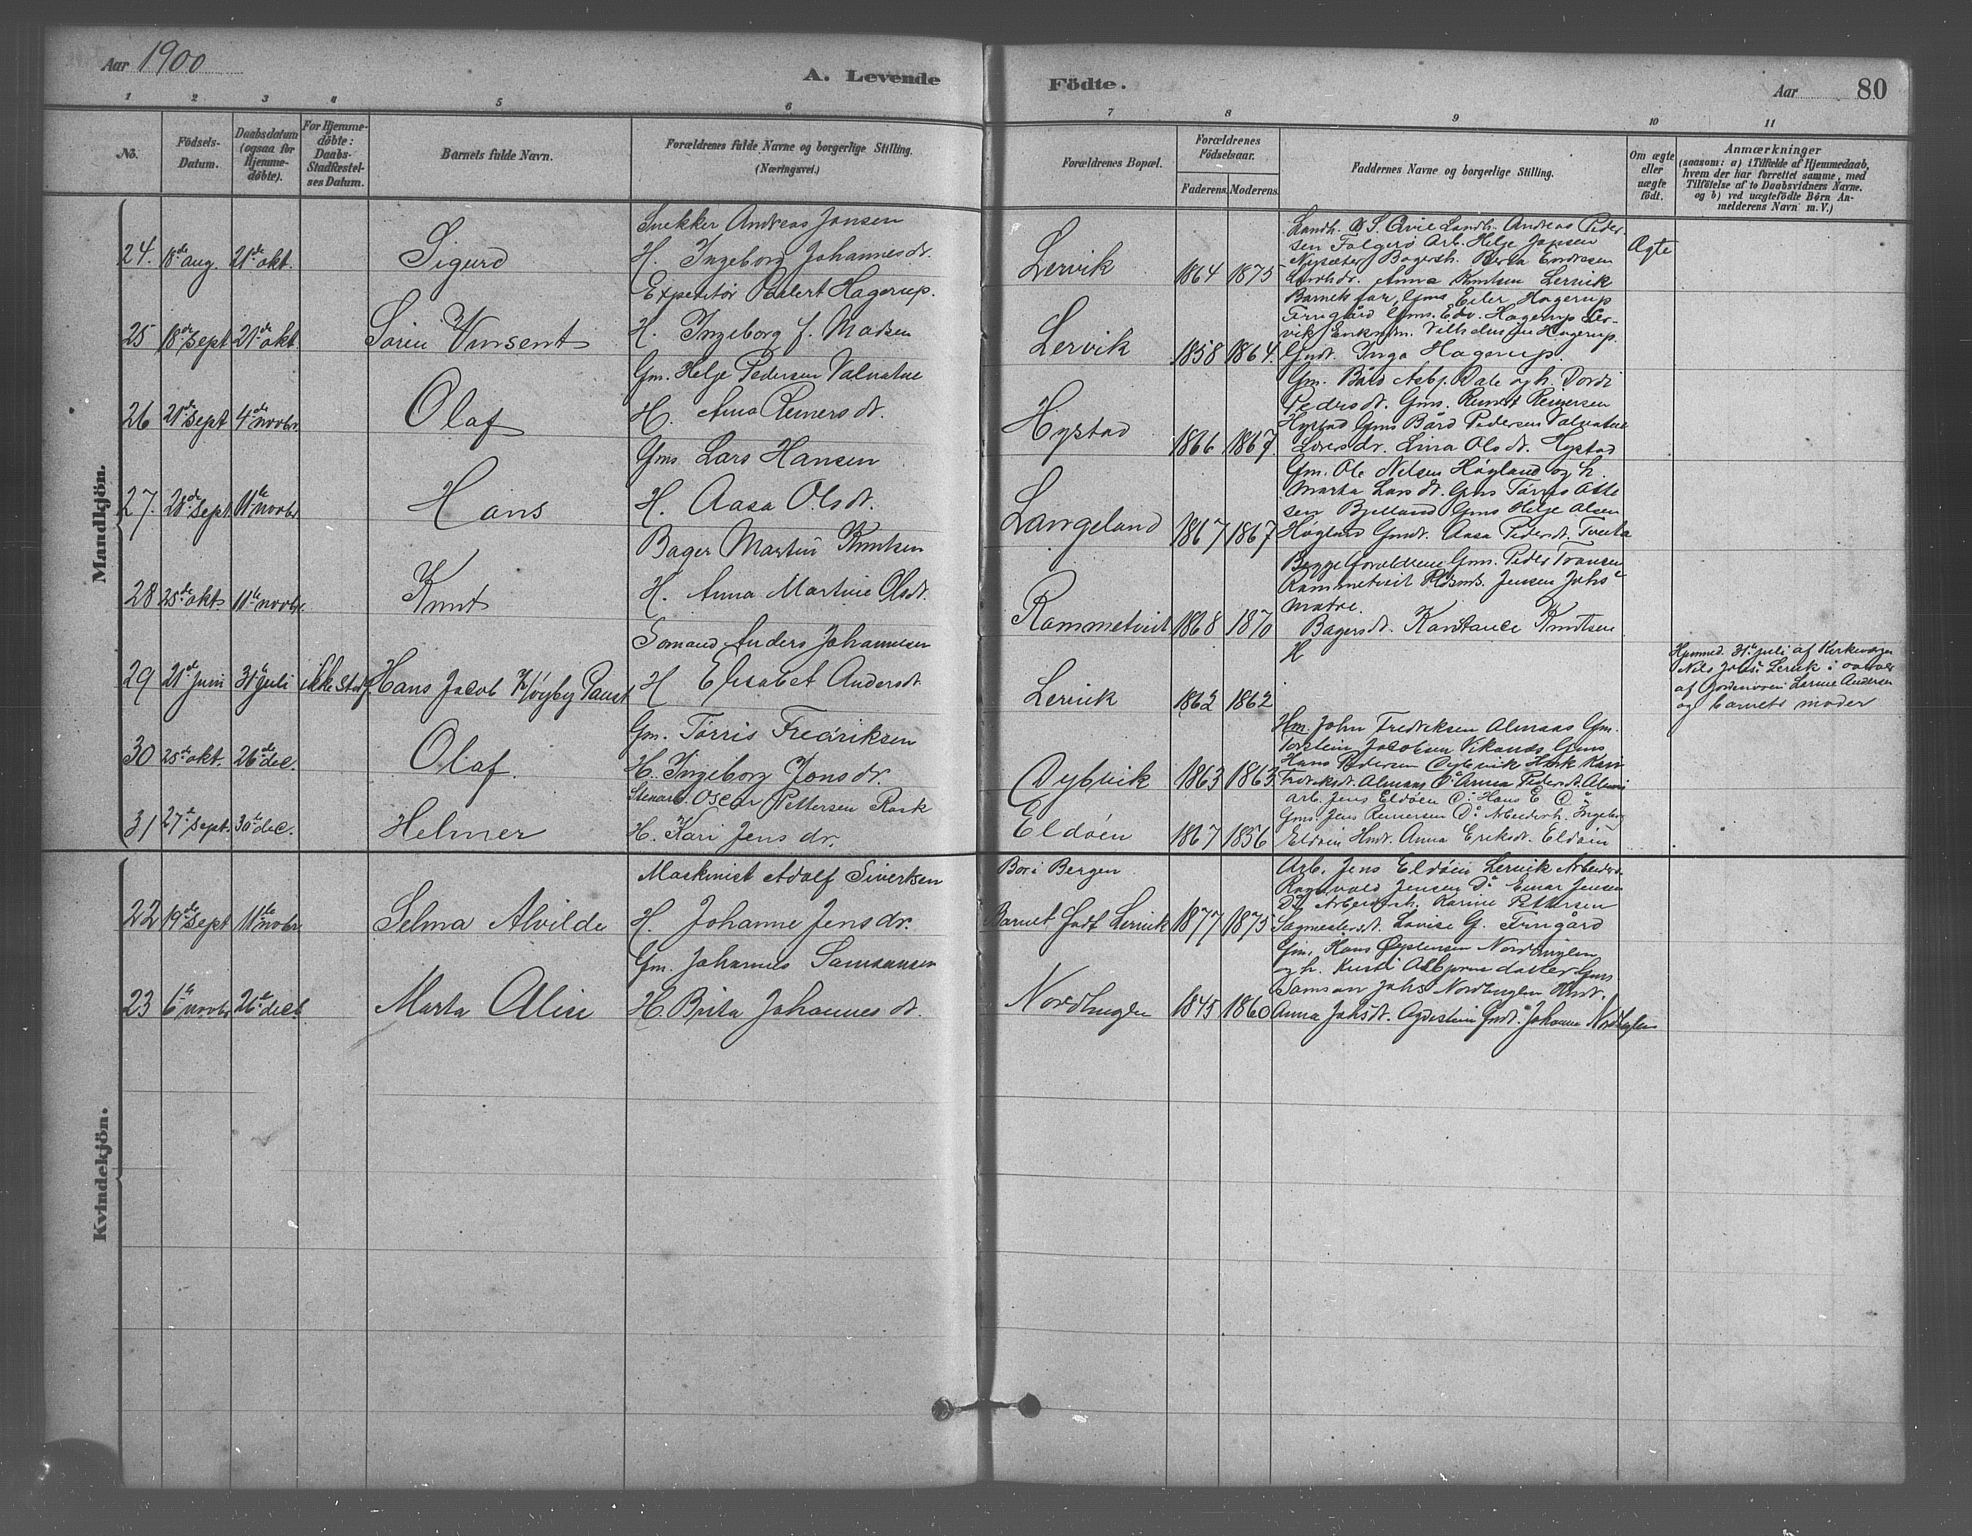 Aar 1900
A. Levende
Födte.
Aar
80
1 2 3 4 5 6 7 8 9 10 11
No.
Födsels-
Datum.
Daabsdatum
(ogsaa for
Hjemme-
döbte).
For Hjemme-
döbte:
Daabs-
Stadfæstel-
ses Datum.
Barnets fulde Navn.
Forældrenes fulde Navne og borgerlige Stilling.
(Næringsvei.)
Forældrenes Bopæl.
Forældrenes
Födselsaar.
Faderens. Moderens.
Faddernes Navne og borgerlige Stilling.
Om ægte
eller
uægte
födt.
Anmærkninger
(saasom: a) i Tilfælde af Hjemmedaab,
hvem der har forrettet samme, med
Tilföielse af to Daabsvidners Navne.
og b) ved uægtefödte Börn An-
melderens Navn m.V.)
Mandkjön.
24. 18de aug. 21de okt.
Sigurd
Snekker Andreas Jansen
H. Ingeborg Johannesdt.
Lervik
1864 1875
Landh. Andreas Peder-
sen Arb. Helje
Anna Knutsen Lervik
Ægte
25 18de sept 21de okt.
Sören Vinsent
Expeditör Hagerup.
H. Ingeborg f. Madsen
Lervik
1858 1864.
Barnets far, Gms Eiler Hagerup
Gms. Edv. Hagerup Ler-
vik Hagerup.
Gmdt. Inga Hagerup.
26 21de sept 4de novbr.
Olaf
Gm. Helje Pedersen Valvatne
H. Anna Reinersdt.
Hystad
1866 1867.
Gm. Bård Asbj. Dale og h. Dordi
Pedersdt. Gms.
Hystad Gms Bård Pedersen Valvatne
Lina Olsdt. Hystad
27. 28de sept 11te novbr
Hans
Gms. Lars Hansen
H. Aasa Olsdt.
Langeland
1867 1867
Gm. Ole Nelsen Högland og h.
Marta Larsdt. Gms Törres Otte
sen Bjelland Gms Helje Olsen
Höglund Gmdt. Aasa Pedersdt. Tveita
28 25de okt 11te novbr.
Knut
Bager Martin Knutsen
H. Anna Martine Olsdt.
Rommetveit
1868 1870
Begge forældrene Gm. Peder
Rommetveit Jensen Johs
Matre.
Bagersdt. Konstance Knutsen
29 21de juni 31te juli ikke stadf.
Hans Jacob Höyby Paust
Sömand Anders Johannesen
H Elisabet Andersdt.
Lervik
1862 1862
H
Hjemmed. 31te juli af Kirkesanger
Nils Johs Lervik i overvær
af Gordemoren Andersen
og barnets moder
30 25de okt. 26de dec.
Olaf.
Gm. Törris Fredriksen
H. Ingeborg Jonsdr.
Dybvik
1863 1863
Hm John Fredriksen Almaas Gm.
Torstein Jacobsen Vikanes Gms
Hans Pedersen Dybvik Hmk Kari
Fredriksdt. Almaas Do Anna Pedersdt. Almaas
31 27de sept. 30te dec.
Helmer
Steward Oscar Pettersen Rask
H. Kari Jensdr.
Eldöen
1867 1856
Arb. Jens Eldöen Do Hans E Do
Gms. Jens Reinersen Do Arbeiderh. Ingebor
Eldöen Hmdt. Anna Eriksdt. Eldöen
Kvindekjön.
22 19de sept 11te novbr.
Selma Alvilde
Maskinist Adolf Sivertsen
H. Johanne Jensdr.
Bor i Bergen
Barnet födt Lervik
1877 1875
Arb. Jens Eldöen Lervik Arbeider
Ragnvald Jensen Do Einar Jensen
Do Arbeiderh. Karine Pettersen
Sagmestersdt. Lovise G. Frugård
23 6te novbr 26de decb.
Marta Aline
Gm. Johannes Samsonsen
H. Brita Johannesdt.
Nordhuglen
1845 1860
Gm. Hans Öystensen Nordhuglen
og h. Kristi Asbjørnsdatter Gms
Samson Johs Nordhuglen Gmdt.
Anna Johsdt. Ögdestein Gmdt. Johanna Nordhuglen